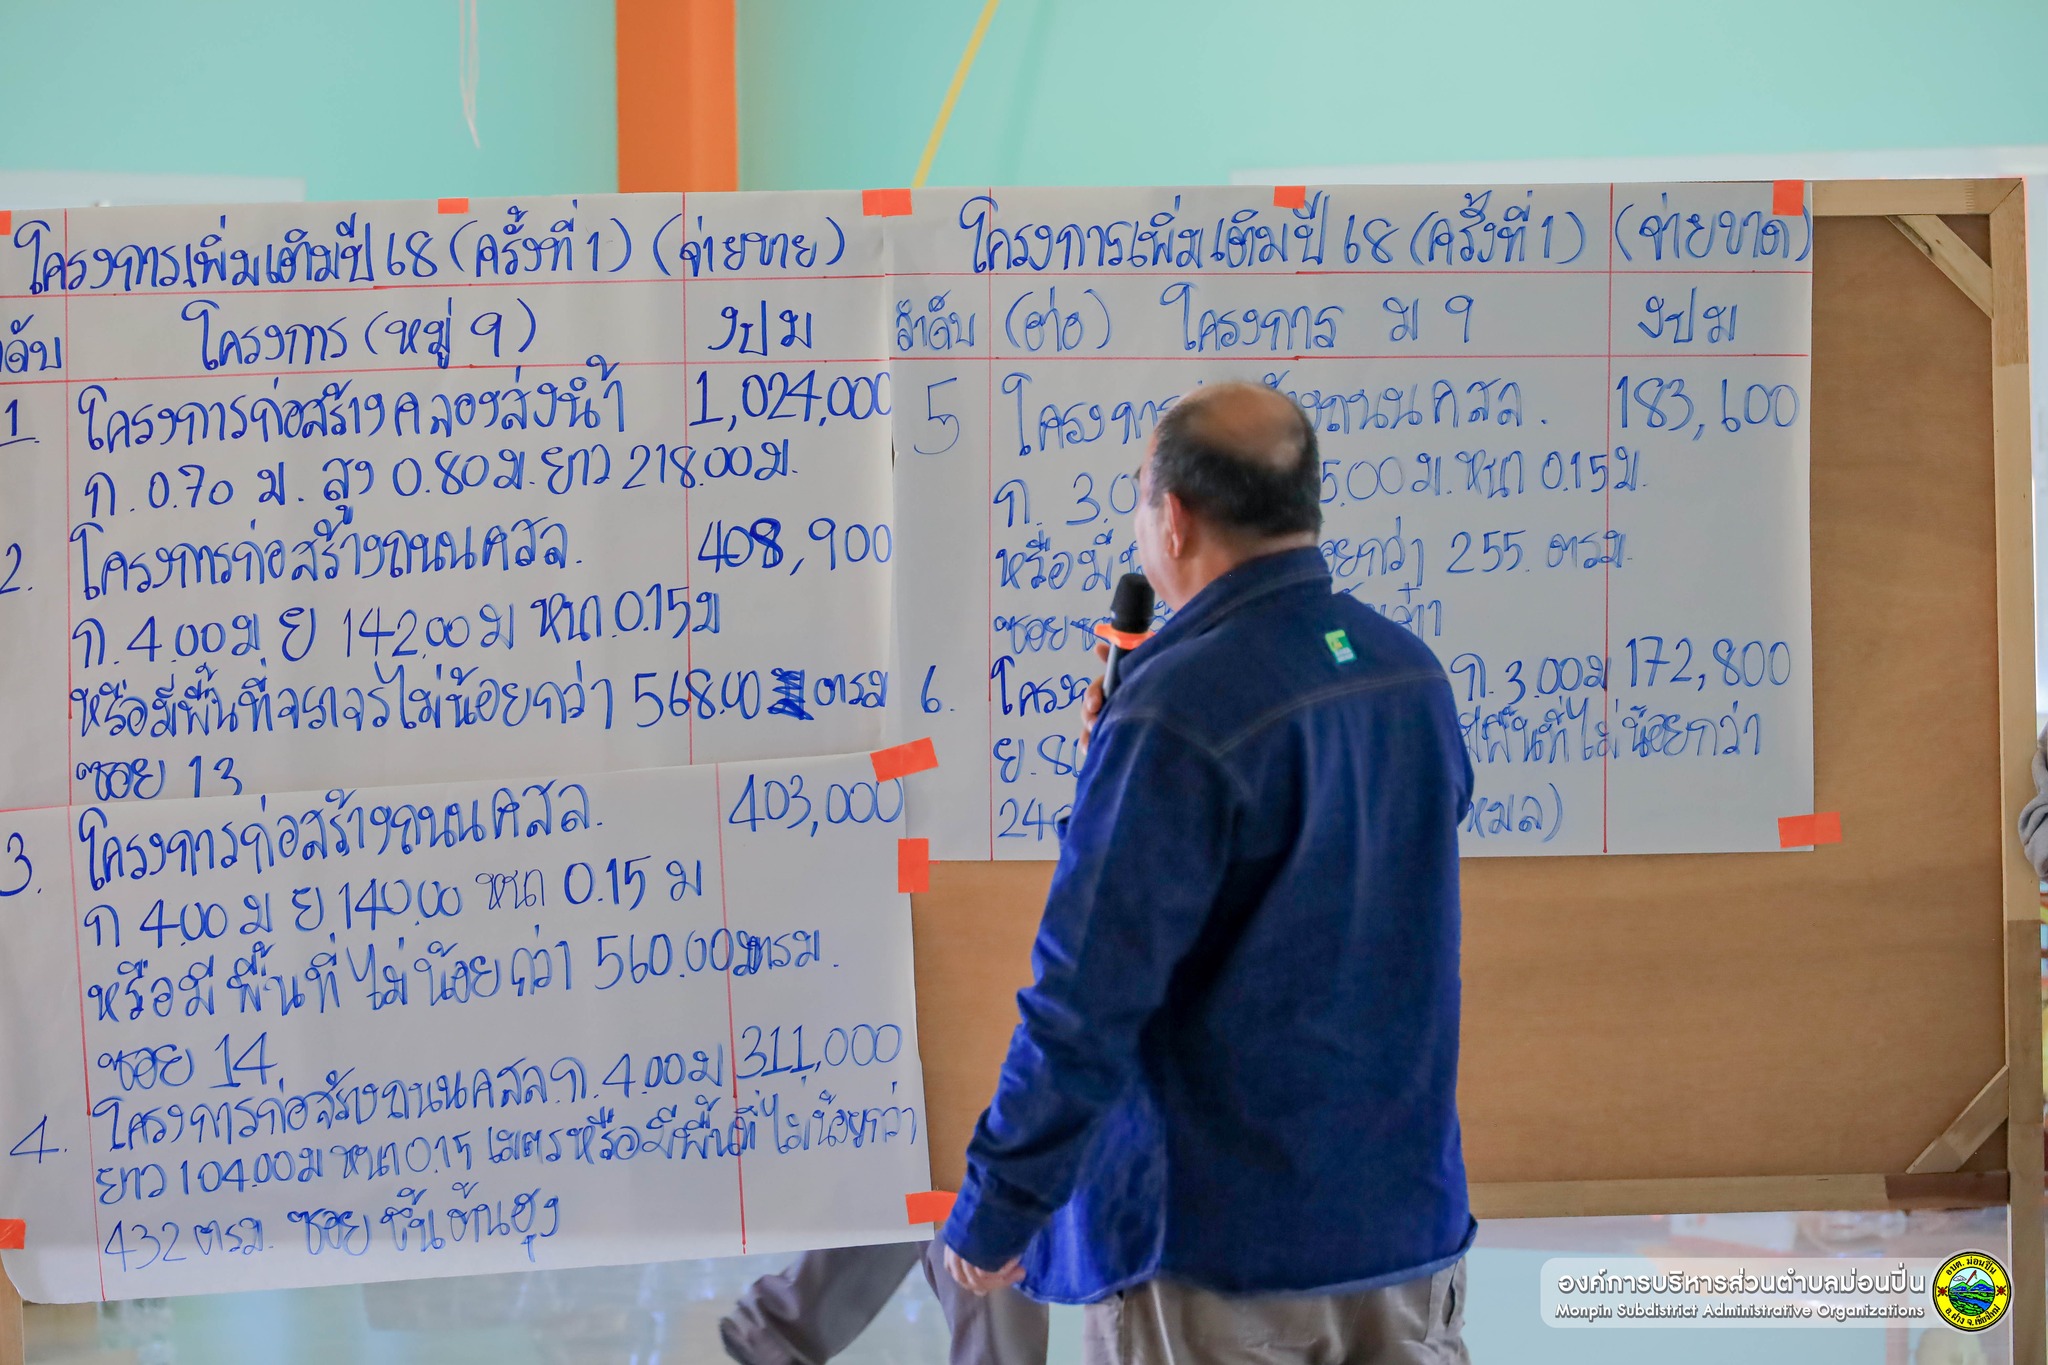 โครงการเพิ่มเติมปี 68 (ครั้งที่ 1) (จ่ายขาย)
ลำดับ โครงการ (หมู่ 9) งปม
1. โครงการก่อสร้างคลองส่งน้ำ 1,024,000
ก. 0.70 ม. สูง 0.80 ม. ยาว 218.00 ม.
2. โครงการก่อสร้างถนน คสล. 408,900
ก. 4.00 ม ย 142.00 ม หนา 0.15 ม
หรือมีพื้นที่จราจรไม่น้อยกว่า 568.00 ตรม
ซอย 13
3. โครงการก่อสร้างถนน คสล. 403,000
ก 4.00 ม ย. 140.00 หนา 0.15 ม
หรือมี พื้นที่ ไม่น้อยกว่า 560.00 ตรม.
ซอย 14
4. โครงการก่อสร้างถนน คสล. ก. 4.00 ม 311,000
ยาว 104.00 ม หนา 0.15 เมตร หรือมีพื้นที่ ไม่น้อยกว่า
432 ตรม. ซอย ขึ้นต้นฮุง
โครงการเพิ่มเติมปี 68 (ครั้งที่ 1) (จ่ายขาด)
ลำดับ (ต่อ) โครงการ ม 9 งปม
5 โครงการ ถนน คสล. 183,600
ก. 3.0 5.00 ม. หนา 0.15 ม.
หรือมี กว่า 255. ตรม.
ซอย
6. ก. 3.00 ม 172,800
ย. 8 มีพื้นที่ไม่น้อยกว่า
24
องค์การบริหารส่วนตำบลม่อนปิ่น
Monpin Subdistrict Administrative Organizations
อบต. ม่อนปิ่น
อ.ฝาง จ.เชียงใหม่